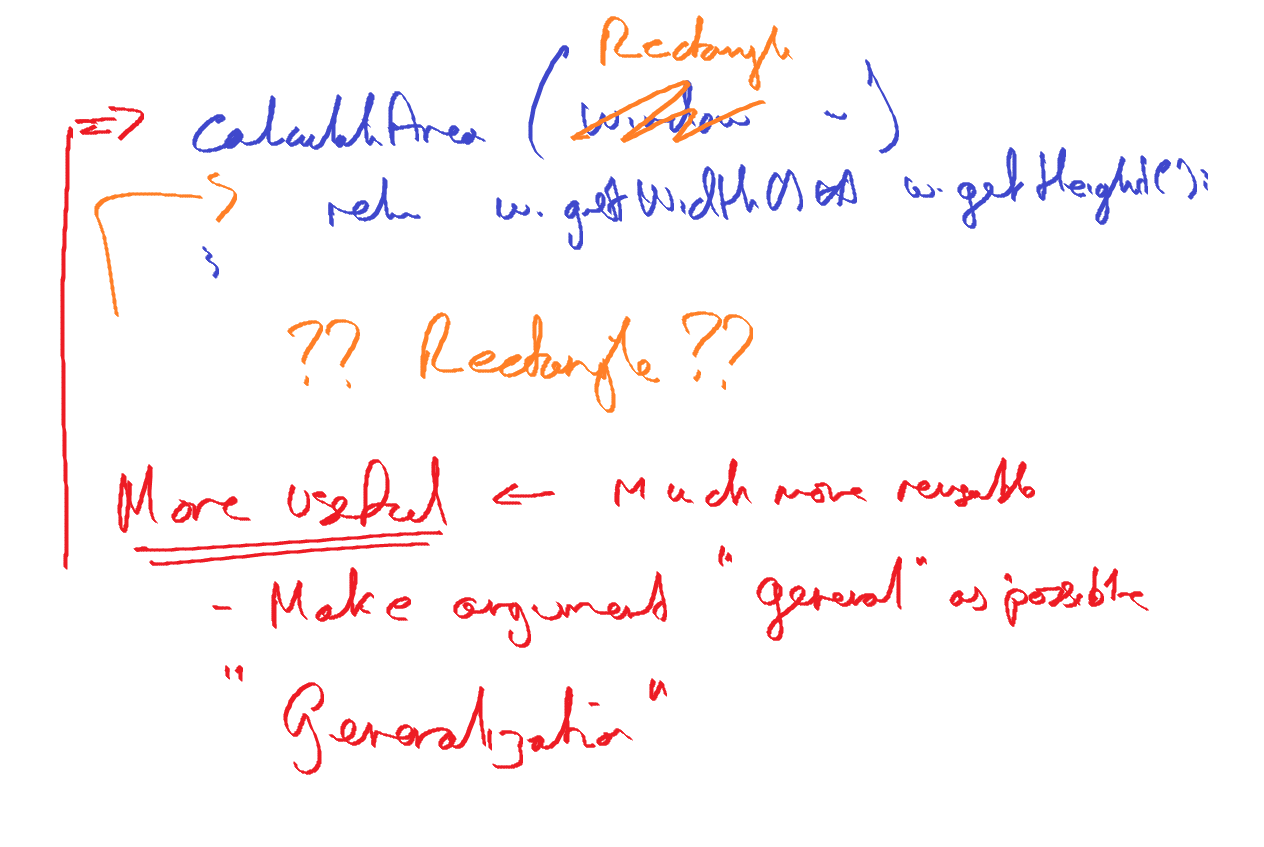 Rectangle
=> calculateArea ( Window w )
return w.getWidth() * w.getHeight();
}
?? Rectangle ??
More useful ← Much more reusable
- Make argument "general" as possible
"Generalization"